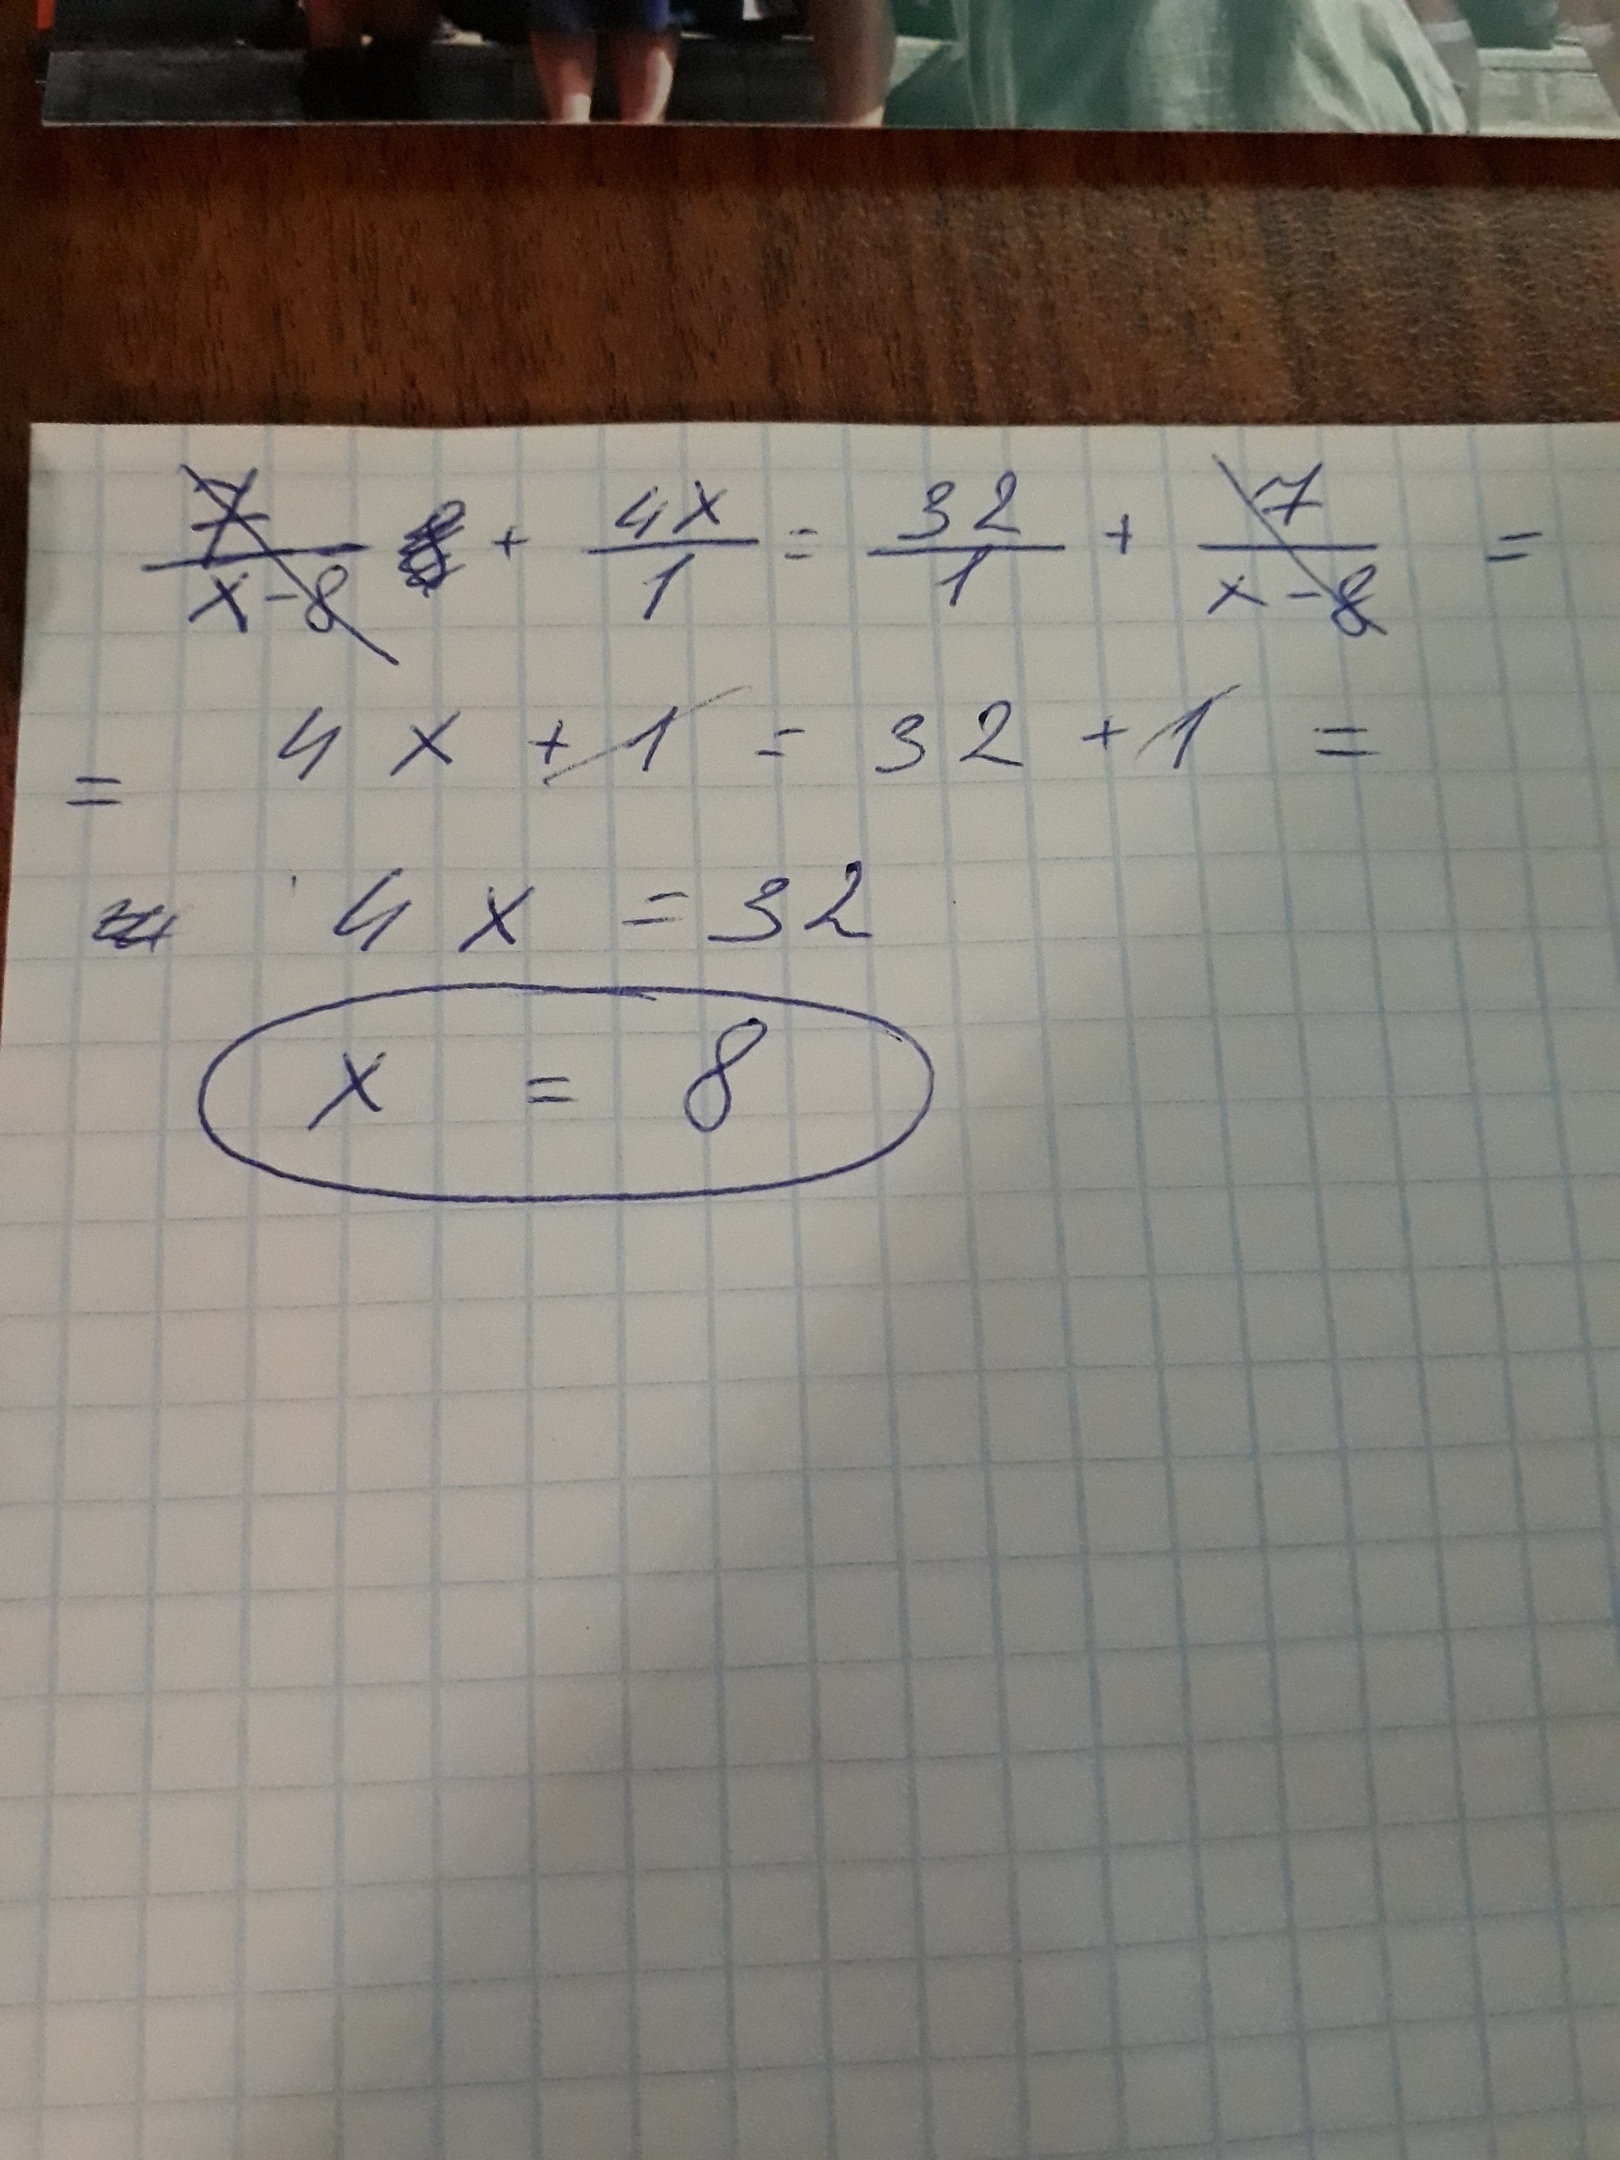 7/(x-8) + 4x/1 = 32/1 + 7/(x-8) =
= 4x + 1 = 32 + 1 =
4x = 32
x = 8